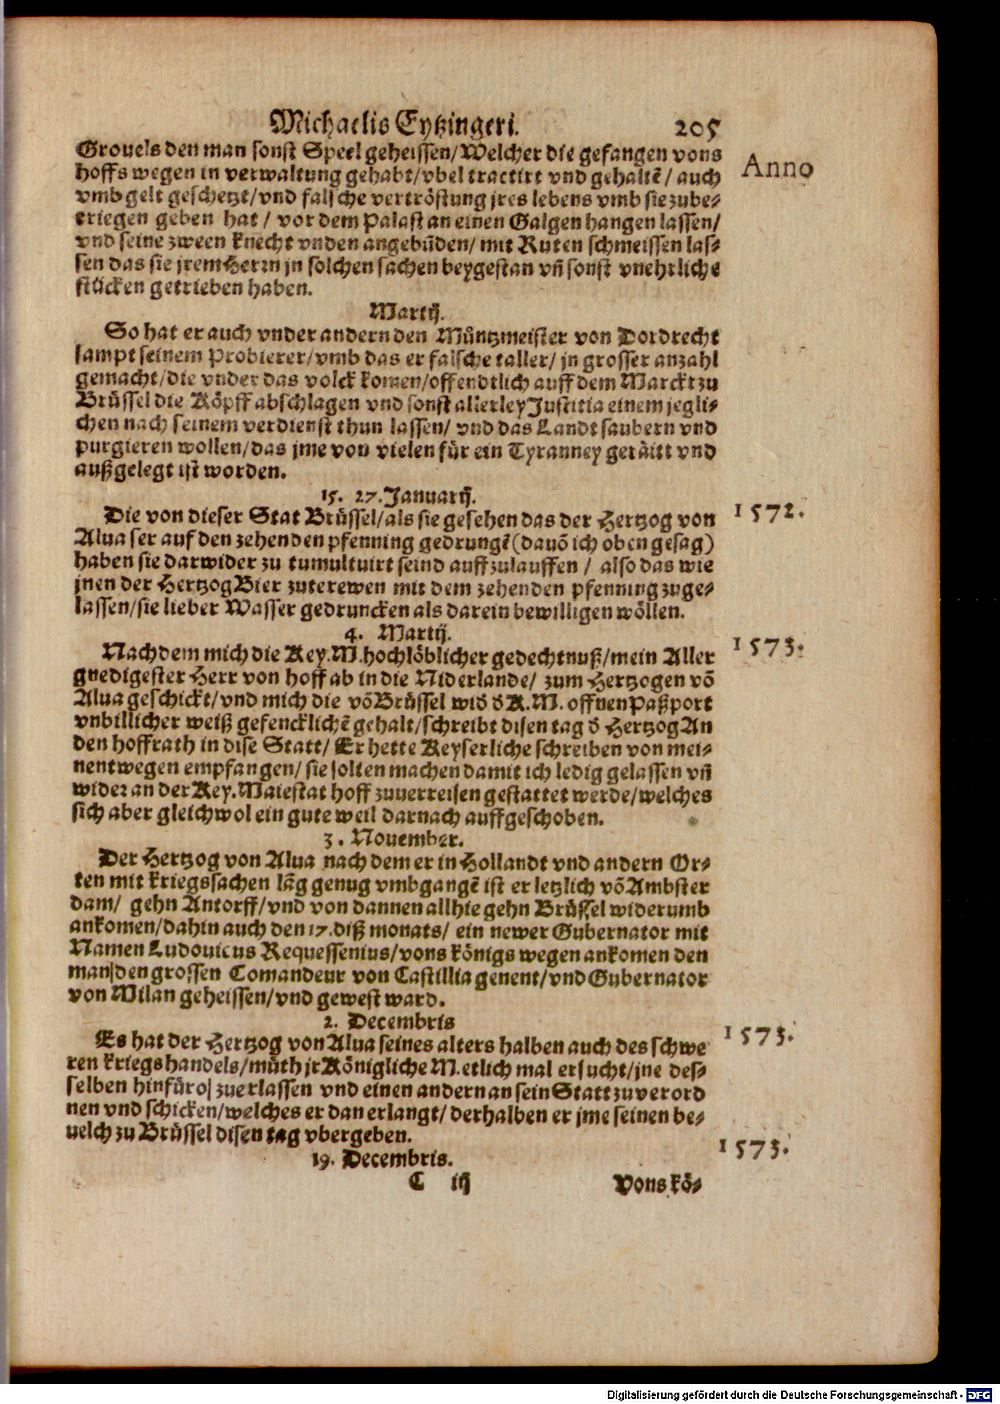 Michaelis Eytzingeri. 205
Anno
Grouels den man sonst Speel geheissen/Welcher die gefangen vons
hoffs wegen in verwaltung gehabt/vbel tractirt vnd gehaltē/ auch
vmb gelt geschetzt/vnd falsche vertröstung jres lebens vmb sie zube-
kriegen geben hat/ vor dem Palast an einen Galgen hangen lassen/
vnd seine zween knecht vnden angebūden/ mit Ruten schmeissen las-
sen das sie jrem Herrn jn solchen sachen beygestan vñ sonst vnehrliche
stücken getrieben haben.
Martij.
So hat er auch vnder andern den Müntzmeister von Dordrecht
sampt seinem Probierer/vmb das er falsche taller/ jn grosser anzahl
gemacht/die vnder das volck komen/offendtlich auff dem Marckt zu
Brüssel die Köpff abschlagen vnd sonst allerley Justitia einem jegli-
chen nach seinem verdienst thun lassen/ vnd das Landt saubern vnd
purgieren wollen/das jme von vielen für ein Tyranney geräitt vnd
außgelegt ist worden.
15. 27. Januarij.
1572.
Die von dieser Stat Brüssel/als sie gesehen das der Hertzog von
Alua ser auf den zehenden pfenning gedrungē (dauō ich oben gesag)
haben sie darwider zu tumultuirt seind auffzulauffen/ also das wie
jnen der Hertzog Bier zuterewen mit dem zehenden pfenning zuge-
lassen/sie lieber Wasser gedruncken als darein bewilligen wöllen.
4. Martij.
1573.
Nachdem mich die Key. M. hochlöblicher gedechtnuß/mein Aller
gnedigester Herr von hoff ab in die Niderlande/ zum Hertzogen vō
Alua geschickt/vnd mich die vō Brüssel wid̄ d̄ K. M. offnen Paßport
vnbillicher weiß gefencklichē gehalt/schreibt disen tag d̄ Hertzog An
den hoffrath in dise Statt/ Er hette Keyserliche schreiben von mei-
nentwegen empfangen/ sie solten machen damit ich ledig gelassen vñ
wider an der Key. Maiestat hoff zuuerreisen gestattet werde/welches
sich aber gleichwol ein gute weil darnach auffgeschoben.
3. Nouember.
Der Hertzog von Alua nach dem er in Hollandt vnd andern Or-
ten mit kriegssachen lāg genug vmbgangē ist er letzlich vō Ambster
dam/ gehn Antorff/vnd von dannen allhie gehn Brüssel widerumb
ankomen/dahin auch den 17. diß monats/ ein newer Gubernator mit
Namen Ludouicus Requessenius/vons königs wegen ankomen den
man|den grossen Comandeur von Castillia genent/vnd Gubernator
von Milan geheissen/vnd gewest ward.
2. Decembris
1573.
Es hat der Hertzog von Alua seines alters halben auch des schwe
ren kriegshandels/müth jr Königliche M. etlich mal ersucht/jne des-
selben hinfüro| zuerlassen vnd einen andern an sein Statt zuuerord
nen vnd schicken/welches er dan erlangt/ derhalben er jme seinen be-
uelch zu Brüssel disen tag vbergeben.
19. Decembris.
1573.
C iij Vons kö-
Digitalisierung gefördert durch die Deutsche Forschungsgemeinschaft - DFG